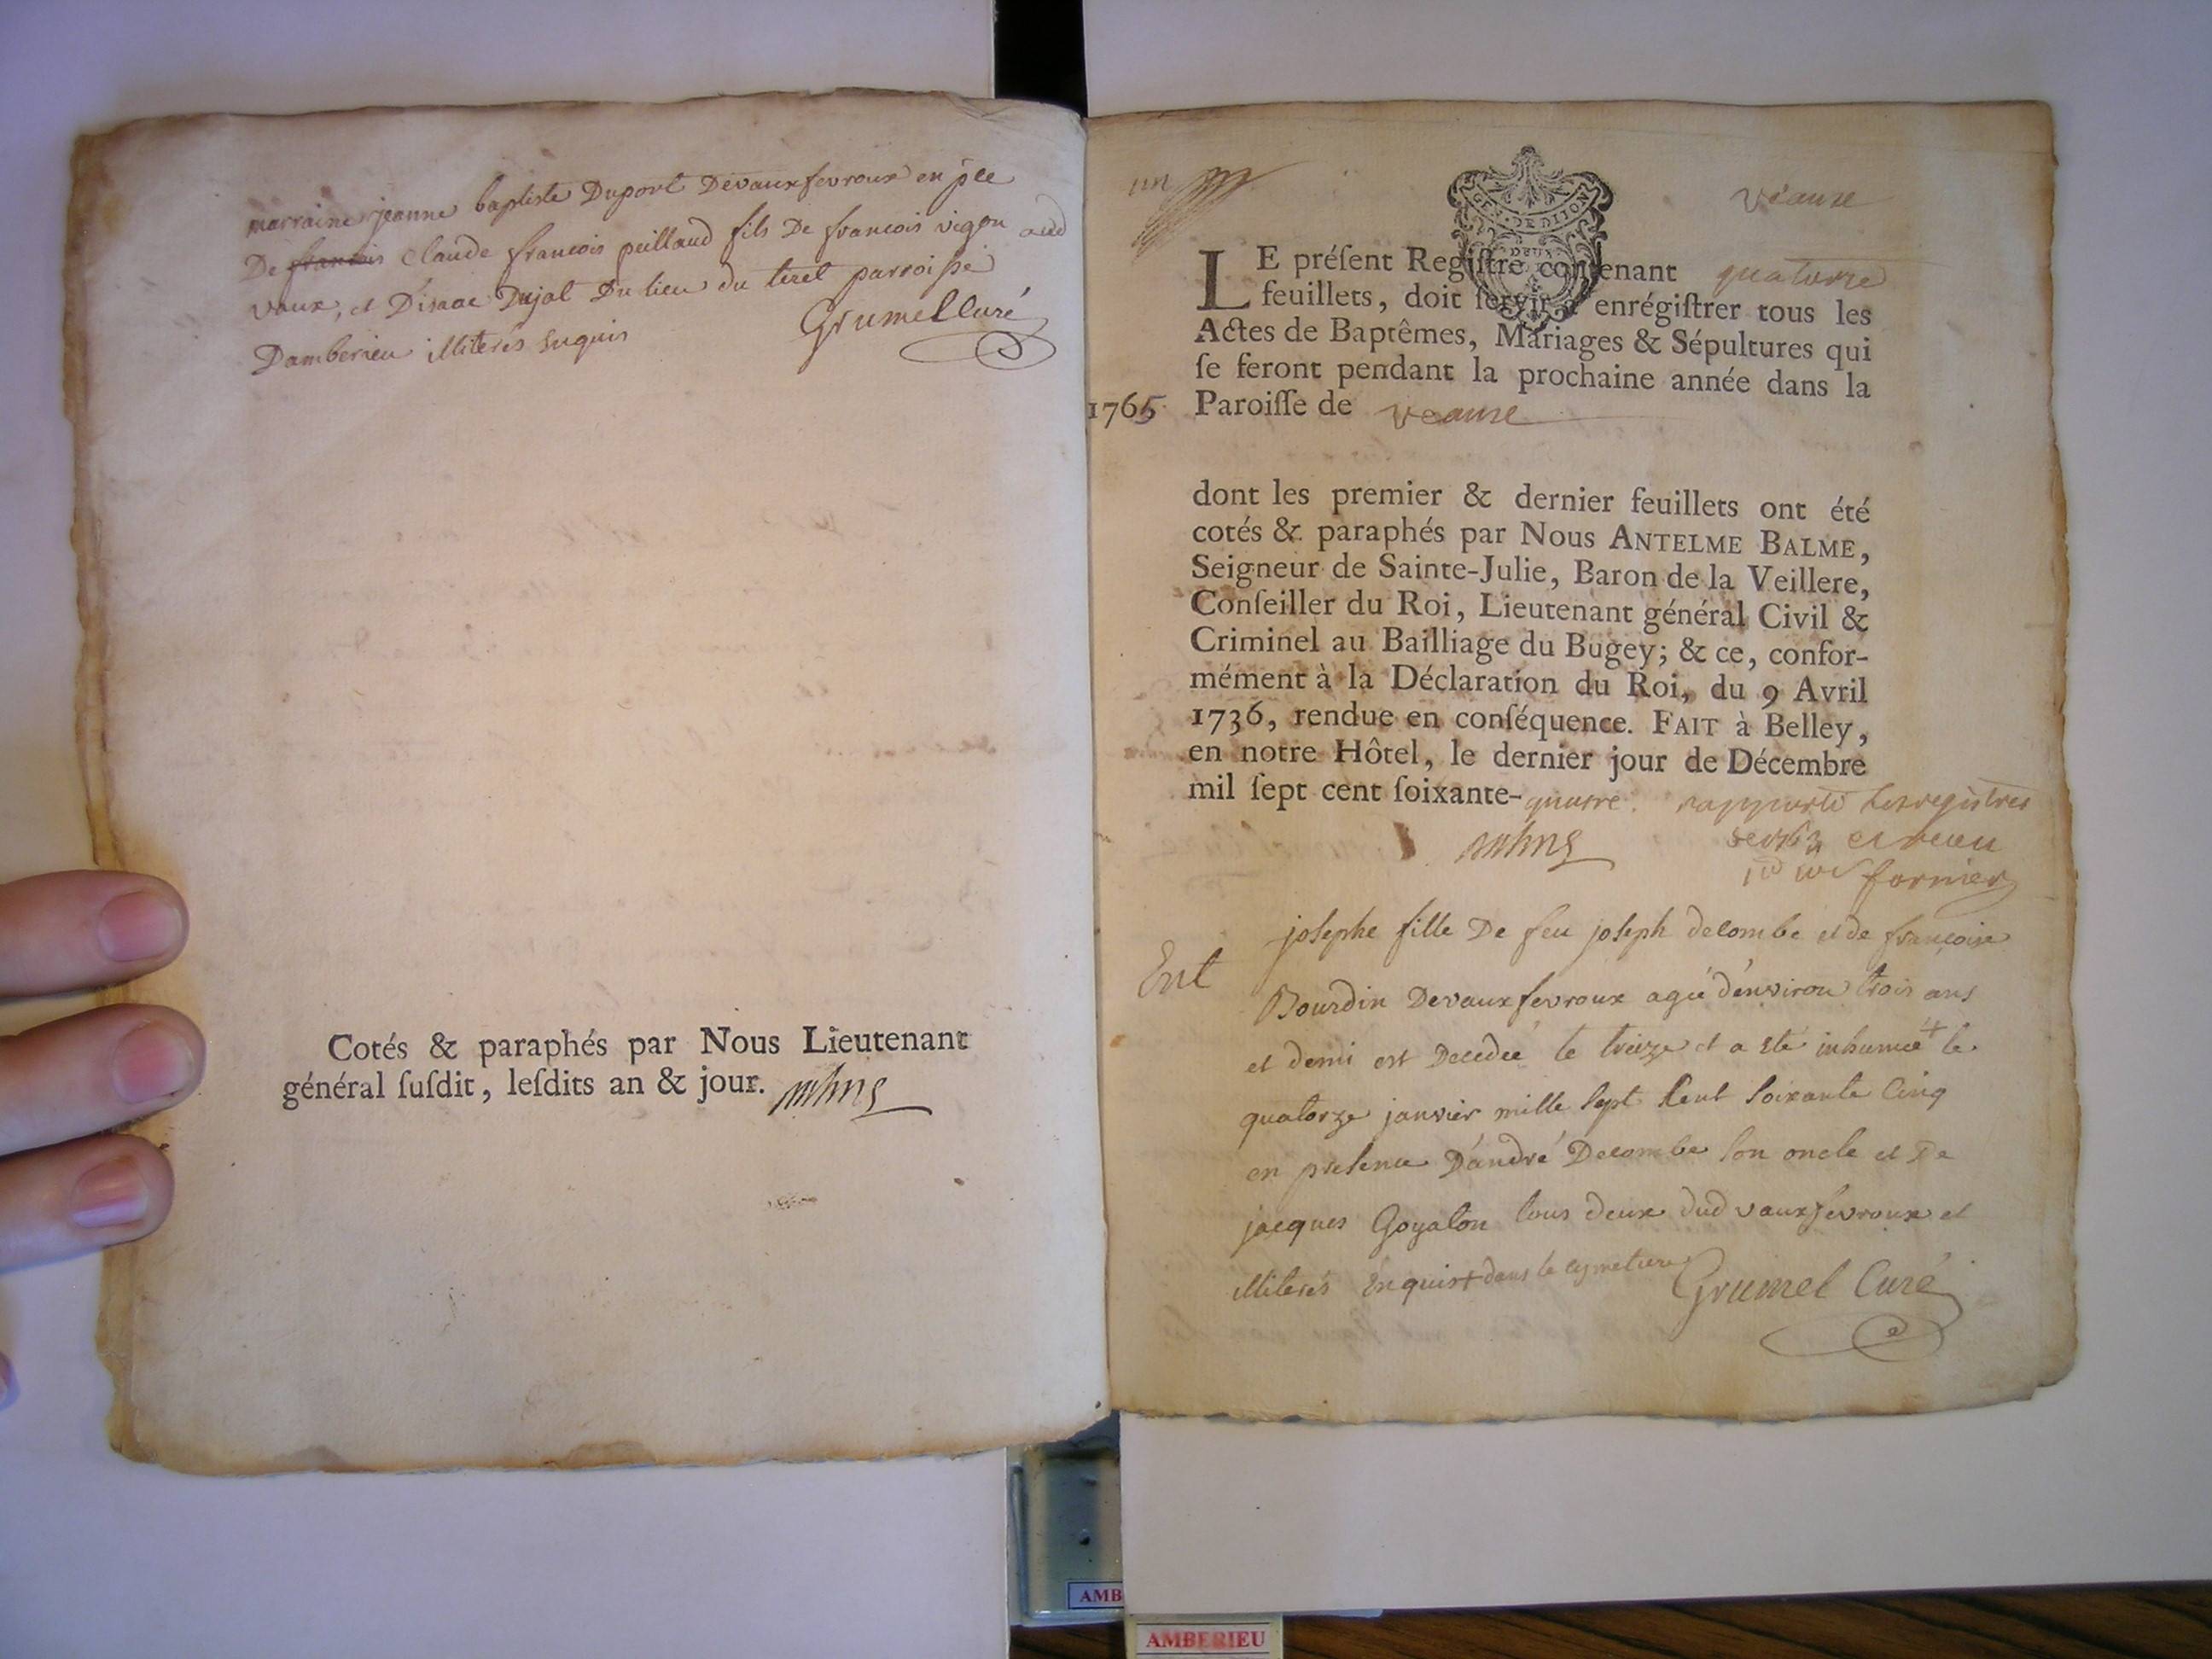 marraine jeanne baptiste Duport Devauxfevroux en pce
De francois Claude francois peillaud fils De francois vigon aud
vaux, et D'isaac Dujat Du lieu du tiret parroisse
Damberieu illiterés Enquis
Grumel Curé
Cotés & paraphés par Nous Lieutenant
général susdit, lesdits an & jour.
un
GEN. DE DIJON
DEUX
LE présent Registre contenant quatorze
feuillets, doit servir à enrégistrer tous les
Actes de Baptêmes, Mariages & Sépultures qui
se feront pendant la prochaine année dans la
1765 Paroisse de
dont les premier & dernier feuillets ont été
cotés & paraphés par Nous ANTELME BALME,
Seigneur de Sainte-Julie, Baron de la Veillere,
Conseiller du Roi, Lieutenant général Civil &
Criminel au Bailliage du Bugey; & ce, confor-
mément à la Déclaration du Roi, du 9 Avril
1736, rendue en conséquence. FAIT à Belley,
en notre Hôtel, le dernier jour de Décembre
mil sept cent soixante-quatre. rapporté les registres
fornier
Ent
josephe fille De feu joseph decombe et de francoise
Bourdin Devauxfevroux ageé d'environ trois ans
et demi est Decedeé le treize et a eté inhumeé + le
quatorze janvier mille sept Cent soixante Cinq
en presence D'andré Decombe son oncle et De
jacques Goyaton tous deux dud vauxfevroux et
illiterés Enquis + dans le cymetiere
Grumel Curé
AMB
AMBERIEU